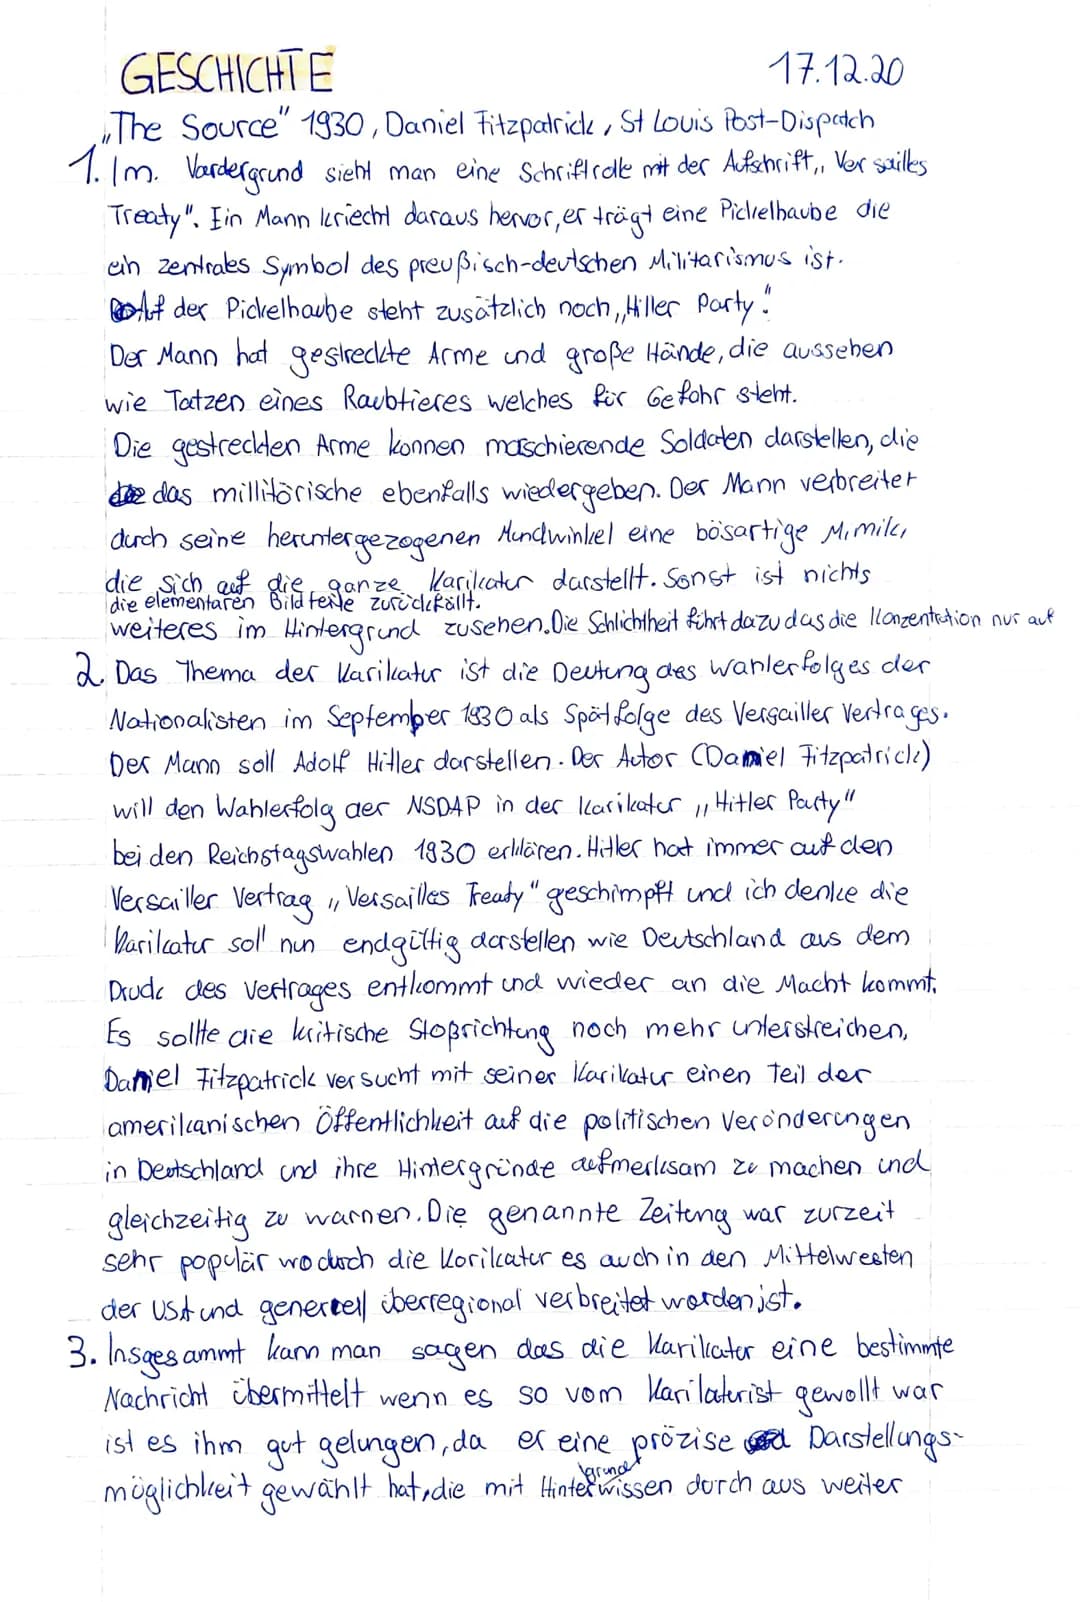 GESCHICHTE 17.12.20
„The Source" 1930, Daniel Fitzpatrick, St Louis Post-Dispatch
1. Im. Vordergrund sieht man eine Schriftrolle mit der Aufschrift „Versailles
Treaty". Ein Mann kriecht daraus hervor, er trägt eine Pickelhaube die
ein zentrales Symbol des preußisch-deutschen Militarismus ist.
Auf der Pickelhaube steht zusätzlich noch „Hitler Party".
Der Mann hat gestreckte Arme und große Hände, die aussehen
wie Tatzen eines Raubtieres welches für Gefahr steht.
Die gestreckten Arme konnen maschierende Soldaten darstellen, die
das millitärische ebenfalls wiedergeben. Der Mann verbreitet
durch seine heruntergezogenen Mundwinkel eine bösartige Mimik,
die sich auf die ganze Karikatur darstellt. Sonst ist nichts
weiteres im Hintergrund zusehen. Die Schlichtheit führt dazu das die Konzentration nur auf
die elementaren Bildteile zurückfällt.
2. Das Thema der Karikatur ist die Deutung des wahlerfolges der
Nationalisten im September 1930 als Spätfolge des Versailler Vertrages.
Der Mann soll Adolf Hitler darstellen. Der Autor (Daniel Fitzpatrick)
will den Wahlerfolg der NSDAP in der Karikatur „Hitler Party"
bei den Reichstagswahlen 1930 erklären. Hitler hat immer auf den
Versailler Vertrag „Versailles Treaty" geschimpft und ich denke die
Karikatur soll nun endgültig darstellen wie Deutschland aus dem
Druck des Vertrages entkommt und wieder an die Macht kommt.
Es sollte die kritische Stoßrichtung noch mehr unterstreichen,
Daniel Fitzpatrick versucht mit seiner Karikatur einen Teil der
amerikanischen Öffentlichkeit auf die politischen Veränderungen
in Deutschland und ihre Hintergründe aufmerksam zu machen und
gleichzeitig zu warnen. Die genannte Zeitung war zurzeit
sehr populär wodurch die Karikatur es auch in den Mittelwesten
der USA und generell überregional verbreitet worden ist.
3. Insgesammt kann man sagen das die Karikatur eine bestimmte
Nachricht übermittelt wenn es so vom Karikaturist gewollt war
ist es ihm gut gelungen, da er eine präzise Darstellungs-
möglichkeit gewählt hat, die mit Hintergrundwissen durch aus weiter